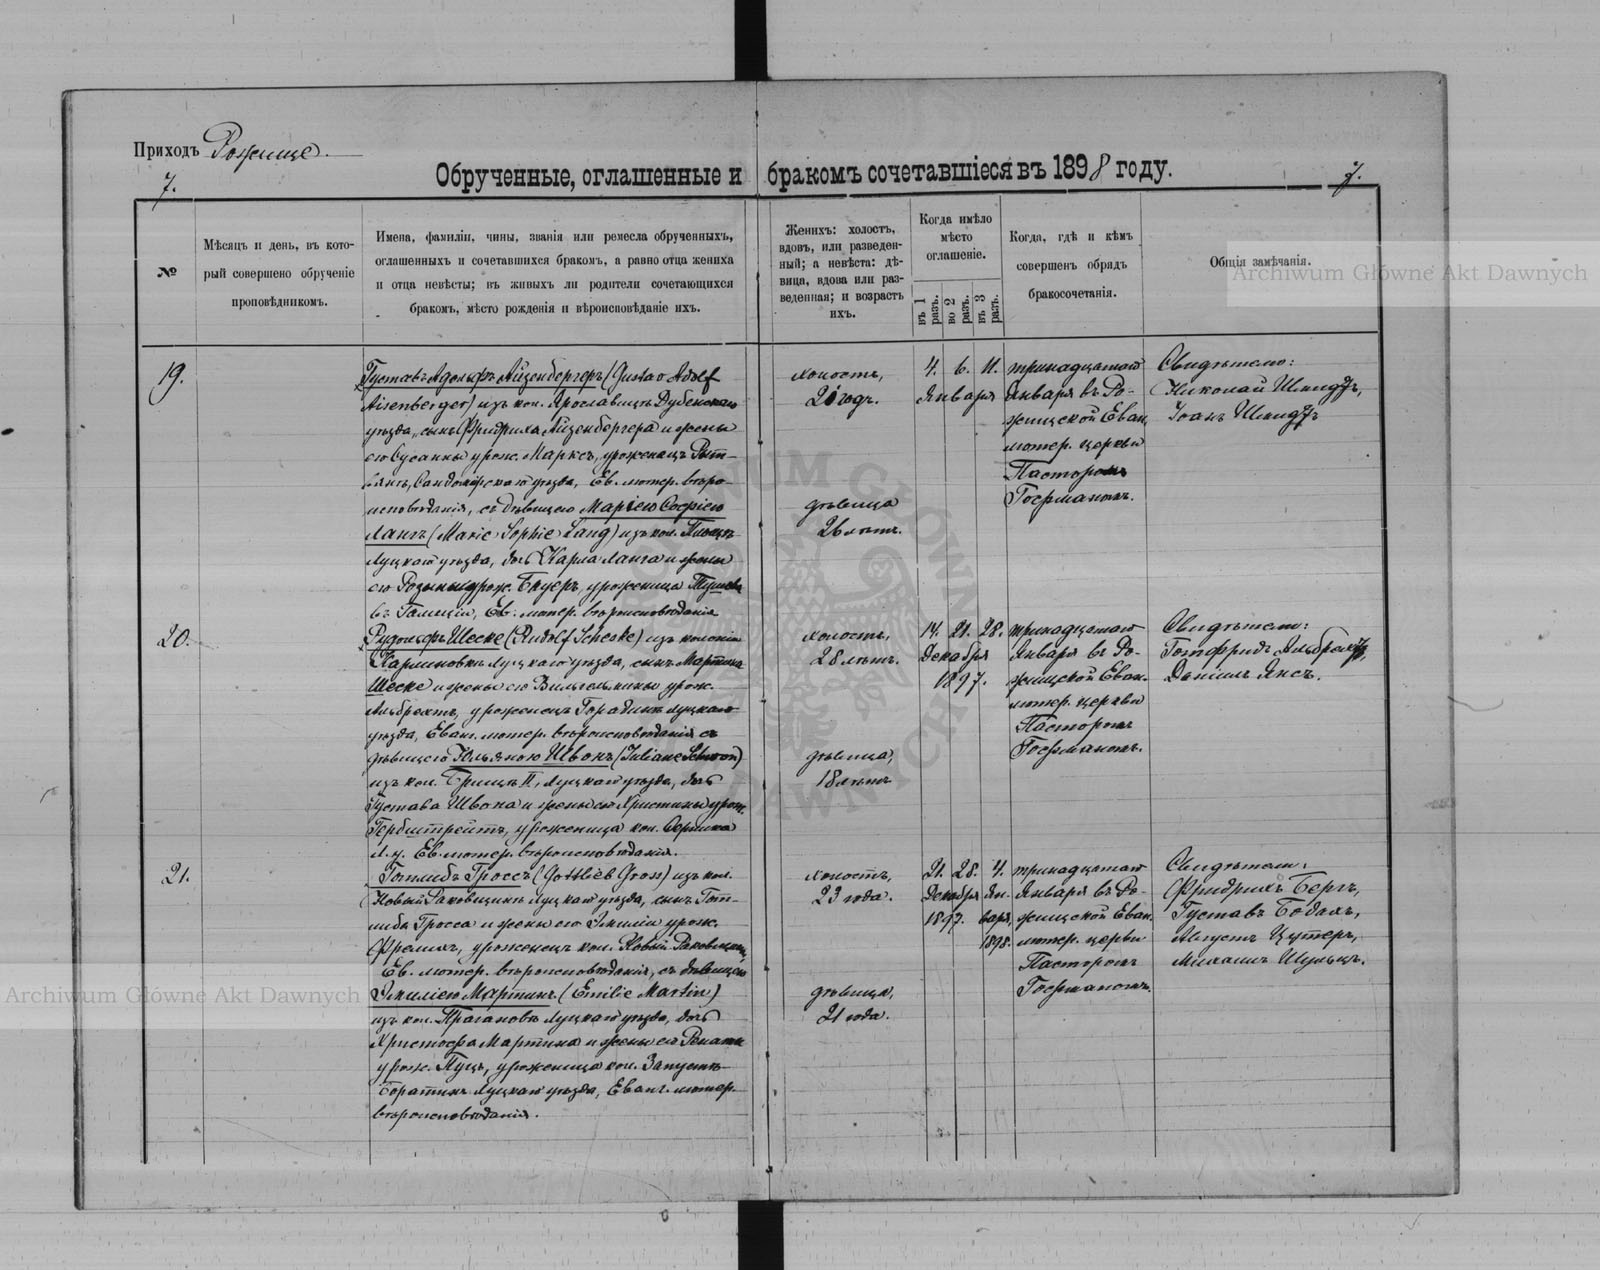 Приходъ Рожище.
7.
Обрученные, оглашенные и бракомъ сочетавшіеся въ 1898 году.
7.
№
Мѣсяцъ и день, въ кото-
рый совершено обрученіе
проповѣдникомъ.
Имена, фамиліи, чины, званія или ремесла обрученныхъ,
оглашенныхъ и сочетавшихся бракомъ, а равно отца жениха
и отца невѣсты; въ живыхъ ли родители сочетающихся
бракомъ, мѣсто рожденія и вѣроисповѣданіе ихъ.
Женихъ: холостъ,
вдовъ, или разведен-
ный; а невѣста: дѣ-
вица, вдова или раз-
веденная; и возрастъ
ихъ.
Когда имѣло
мѣсто
оглашеніе.
въ 1 разъ.
во 2 разъ.
въ 3 разъ.
Когда, гдѣ и кѣмъ
совершенъ обрядъ
бракосочетанія.
Общія замѣчанія.
Archiwum Główne Akt Dawnych
19.
Густавъ Адольфъ Айзенбергеръ (Gustav Adolf
Aisenberger) изъ кол. Ярославичъ Дубенскаго
уѣзда, сынъ Фридриха Айзенбергера и жены
его Сусанны урож. Марксъ, уроженецъ
Сандомірскаго уѣзда, Ев. лютер. вѣро-
исповѣданія, съ дѣвицею Маріею Софіею
Лангъ (Marie Sophie Lang) изъ кол.
Луцкаго уѣзда, дочь Карла Ланга и жены
его Розины урож. Бауеръ, уроженица
въ Галиціи, Ев. лютер. вѣроисповѣданія
холостъ,
21 годъ.
дѣвица
26 лѣтъ.
4. 6. 11.
Января
тринадцатаго
Января въ Ро-
жищской Еван.
лютер. церкви
Пасторомъ
Гоерманомъ.
Свидѣтели:
Николай Шмидтъ,
Іоанъ Шмидтъ
20.
Рудольфъ Шеске (Rudolf Scheske) изъ колоніи
Кариновка Луцкаго уѣзда, сынъ Мартина
Шеске и жены его Вильгельмины урож.
Альбрехтъ, уроженецъ Луцкаго
уѣзда, Еванг. лютер. вѣроисповѣданія съ
дѣвицею Юльяною Швонъ (Juliane Schwon)
изъ кол. II, Луцкаго уѣзда, дочь
Густава Швона и жены его Христины урож.
Гербштрейтъ, уроженица кол.
Л. у. Ев. лютер. вѣроисповѣданія.
холостъ,
28 лѣтъ.
дѣвица,
18 лѣтъ
14. 21. 28.
Декабря
1897.
тринадцатаго
Января въ Ро-
жищской Еван.
лютер. церкви
Пасторомъ
Гоерманомъ.
Свидѣтели:
Готфридъ Альбрехтъ,
Даніилъ Янсъ.
21.
Готлибъ Гроссъ (Gottlieb Gross) изъ кол.
Новый Раковщизна Луцкаго уѣзда, сынъ Гот-
либа Гросса и жены его Эмиліи урож.
уроженецъ кол. Новый
Ев. лютер. вѣроисповѣданія, съ дѣвицею
Эмиліею Мартинъ (Emilie Martin)
изъ кол. Луцкаго уѣзда, дочь
Христофа Мартина и жены его Ренаты
урож. Пуцъ, уроженица кол. Запустъ
Боратинъ Луцкаго уѣзда, Еванг. лютер.
вѣроисповѣданія.
холостъ,
23 года.
дѣвица,
21 года.
21. 28. 4.
Декабря Ян-
1897. варя,
1898.
тринадцатаго
Января въ Ро-
жищской Еван.
лютер. церкви
Пасторомъ
Гоерманомъ.
Свидѣтели:
Фридрихъ Бергъ,
Густавъ Бодахъ,
Августъ Цутеръ,
Михаилъ Шульцъ.
Archiwum Główne Akt Dawnych
ARCHIWUM GŁÓWNE AKT DAWNYCH